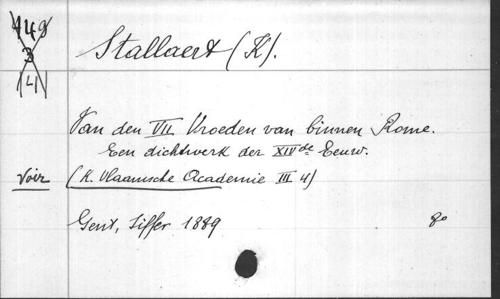 149
3
(4)
Stallaert (K).
Van den VII Vroeden van binnen Rome.
Een dichtwerk der XIVde Eeuw.
Voir (K. Vlaamsche Academie III 4)
Gent, Siffer 1889 8o